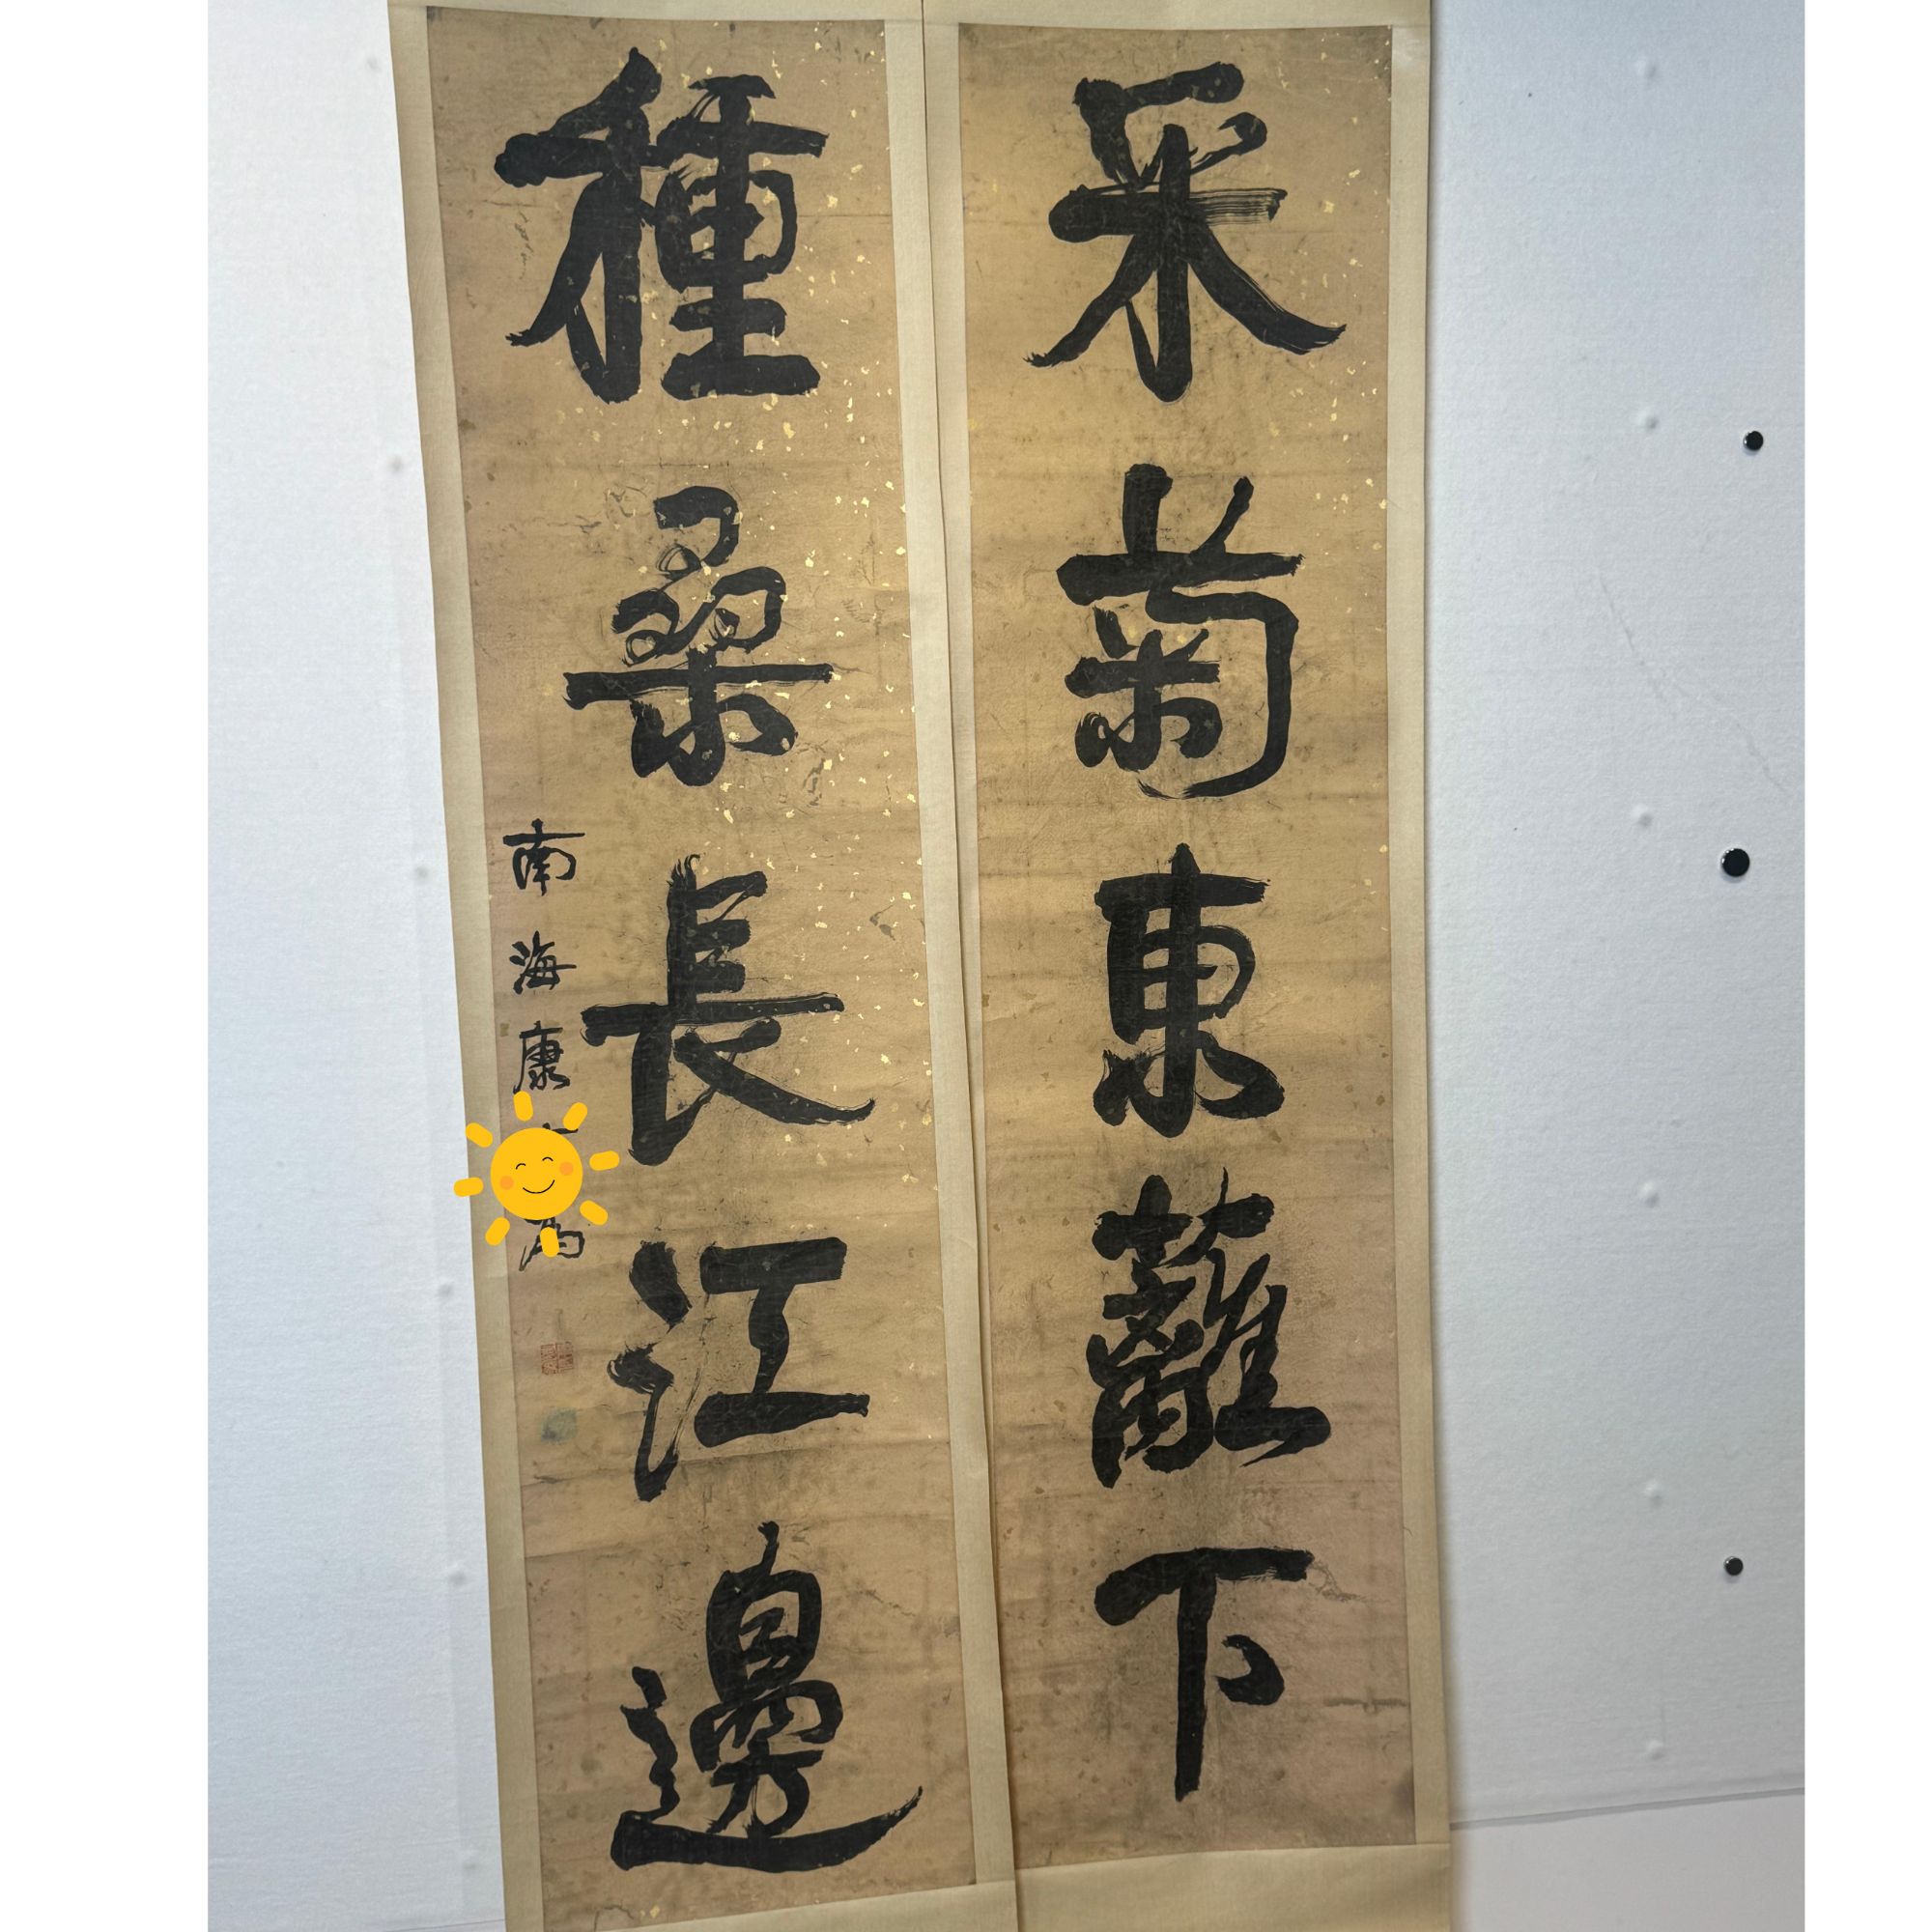 采菊東蘺下
種桑長江邊
南海康